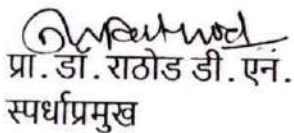 प्रा. डॉ. राठोड डी. एन.
स्पर्धाप्रमुख